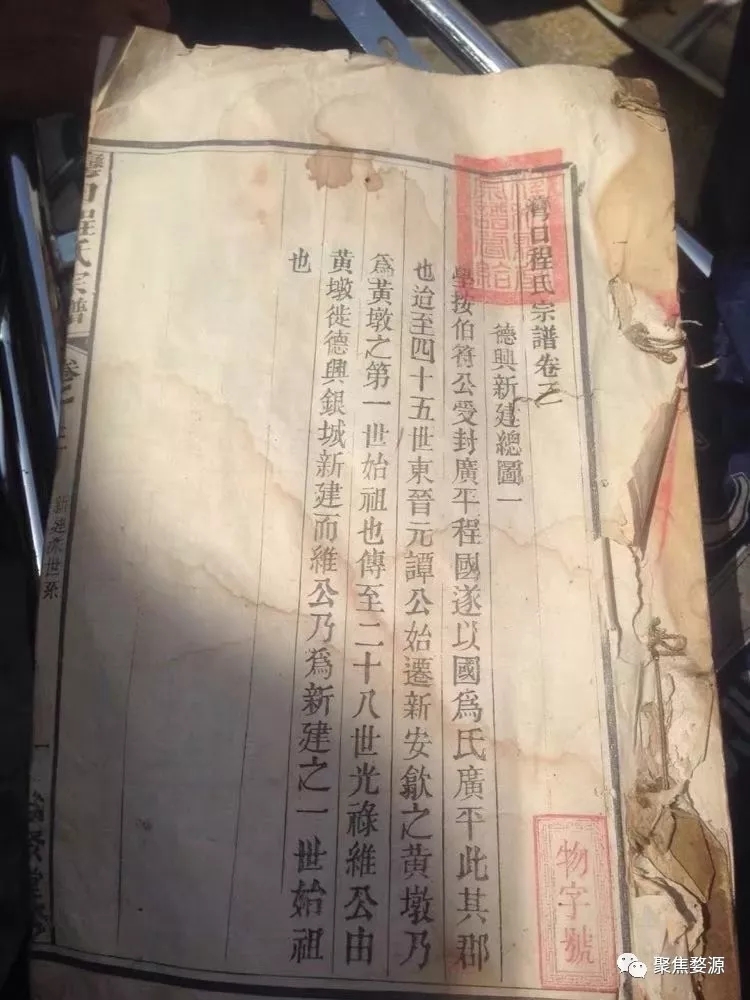 灣口程氏宗譜卷之
德興新建總圖一
學按伯符公受封廣平程國遂以國爲氏廣平此其郡
也迨至四十五世東晉元譚公始遷新安歙之黃墩乃
爲黃墩之第一世始祖也傳至二十八世光祿維公由
黃墩徙德興銀城新建而維公乃爲新建之一世始祖
也
程氏宗譜
卷之
新建派世系
一
物字號
聚焦婺源